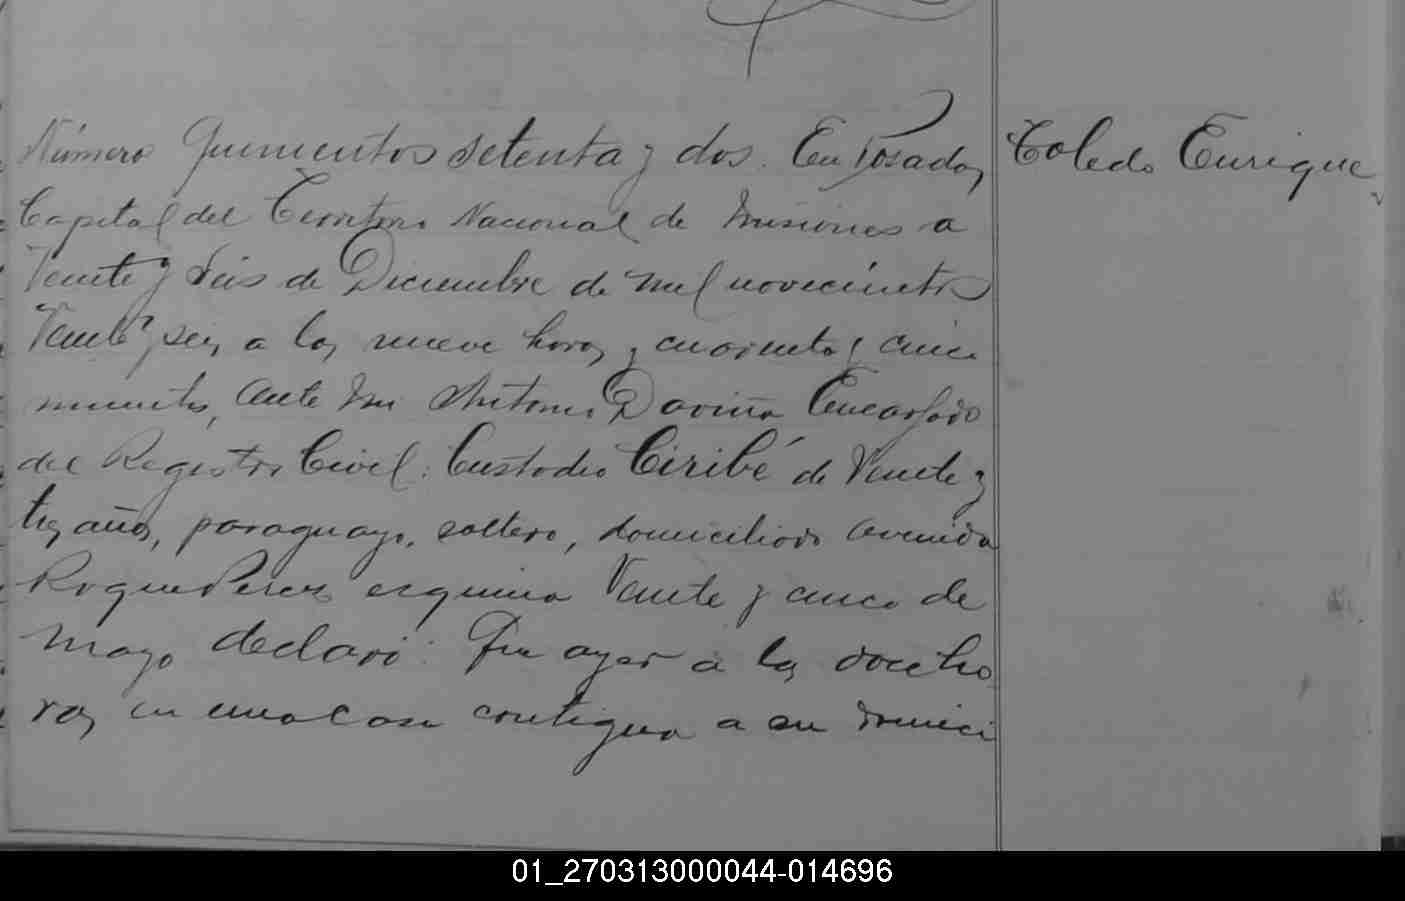 Número Quinientos setenta y dos. En Posadas,
Toledo Enrique
Capital del Territorio Nacional de Misiones a
Veinte y seis de Diciembre de mil novecientos
Veinte y seis, a las nueve horas y cuarenta y cinco
minutos, ante mi Antonio Daviña Encargado
del Registro Civil: Custodio Ciribé de Veinte y
tres años, paraguayo, soltero, domiciliado Avenida
Roque Perez esquina Veinte y cinco de
Mayo declaró: Que ayer a las doce ho
ras, en una casa contigua a su domici
01_270313000044-014696